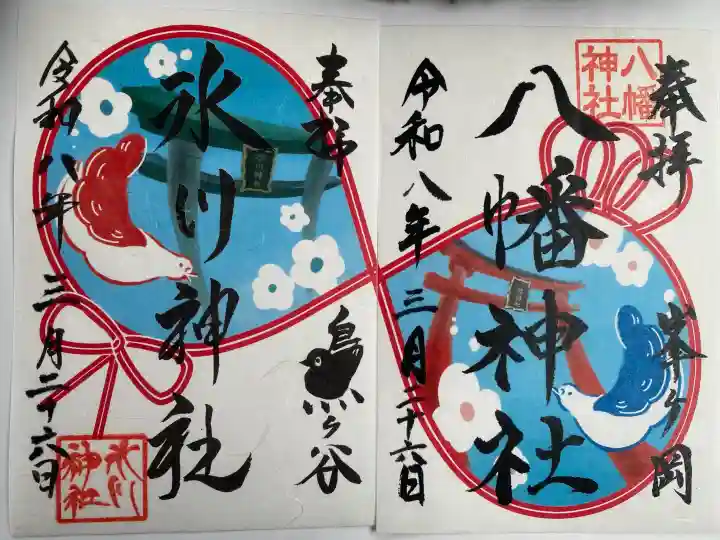 奉拝
八幡神社
峯ヶ岡
八幡神社
令和八年 三月二十六日
奉拝
鳥ヶ谷
氷川神社
氷川神社
令和八年 三月二十六日
氷川神社